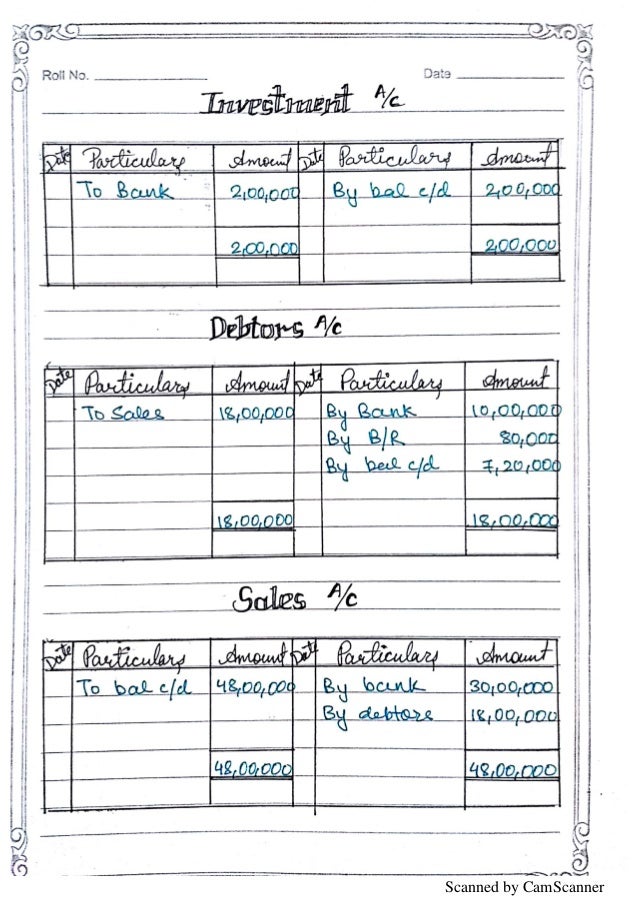 Roll No. Date
Investment A/c
Date Particulars Amount Date Particulars Amount
To Bank 2,00,000 By bal c/d 2,00,000
2,00,000 2,00,000
Debtors A/c
Date Particulars Amount Date Particulars Amount
To Sales 18,00,000 By Bank 10,00,000
By B/R 80,000
By bal c/d 7,20,000
18,00,000 18,00,000
Sales A/c
Date Particulars Amount Date Particulars Amount
To bal c/d 48,00,000 By bank 30,00,000
By debtors 18,00,000
48,00,000 48,00,000
Scanned by CamScanner